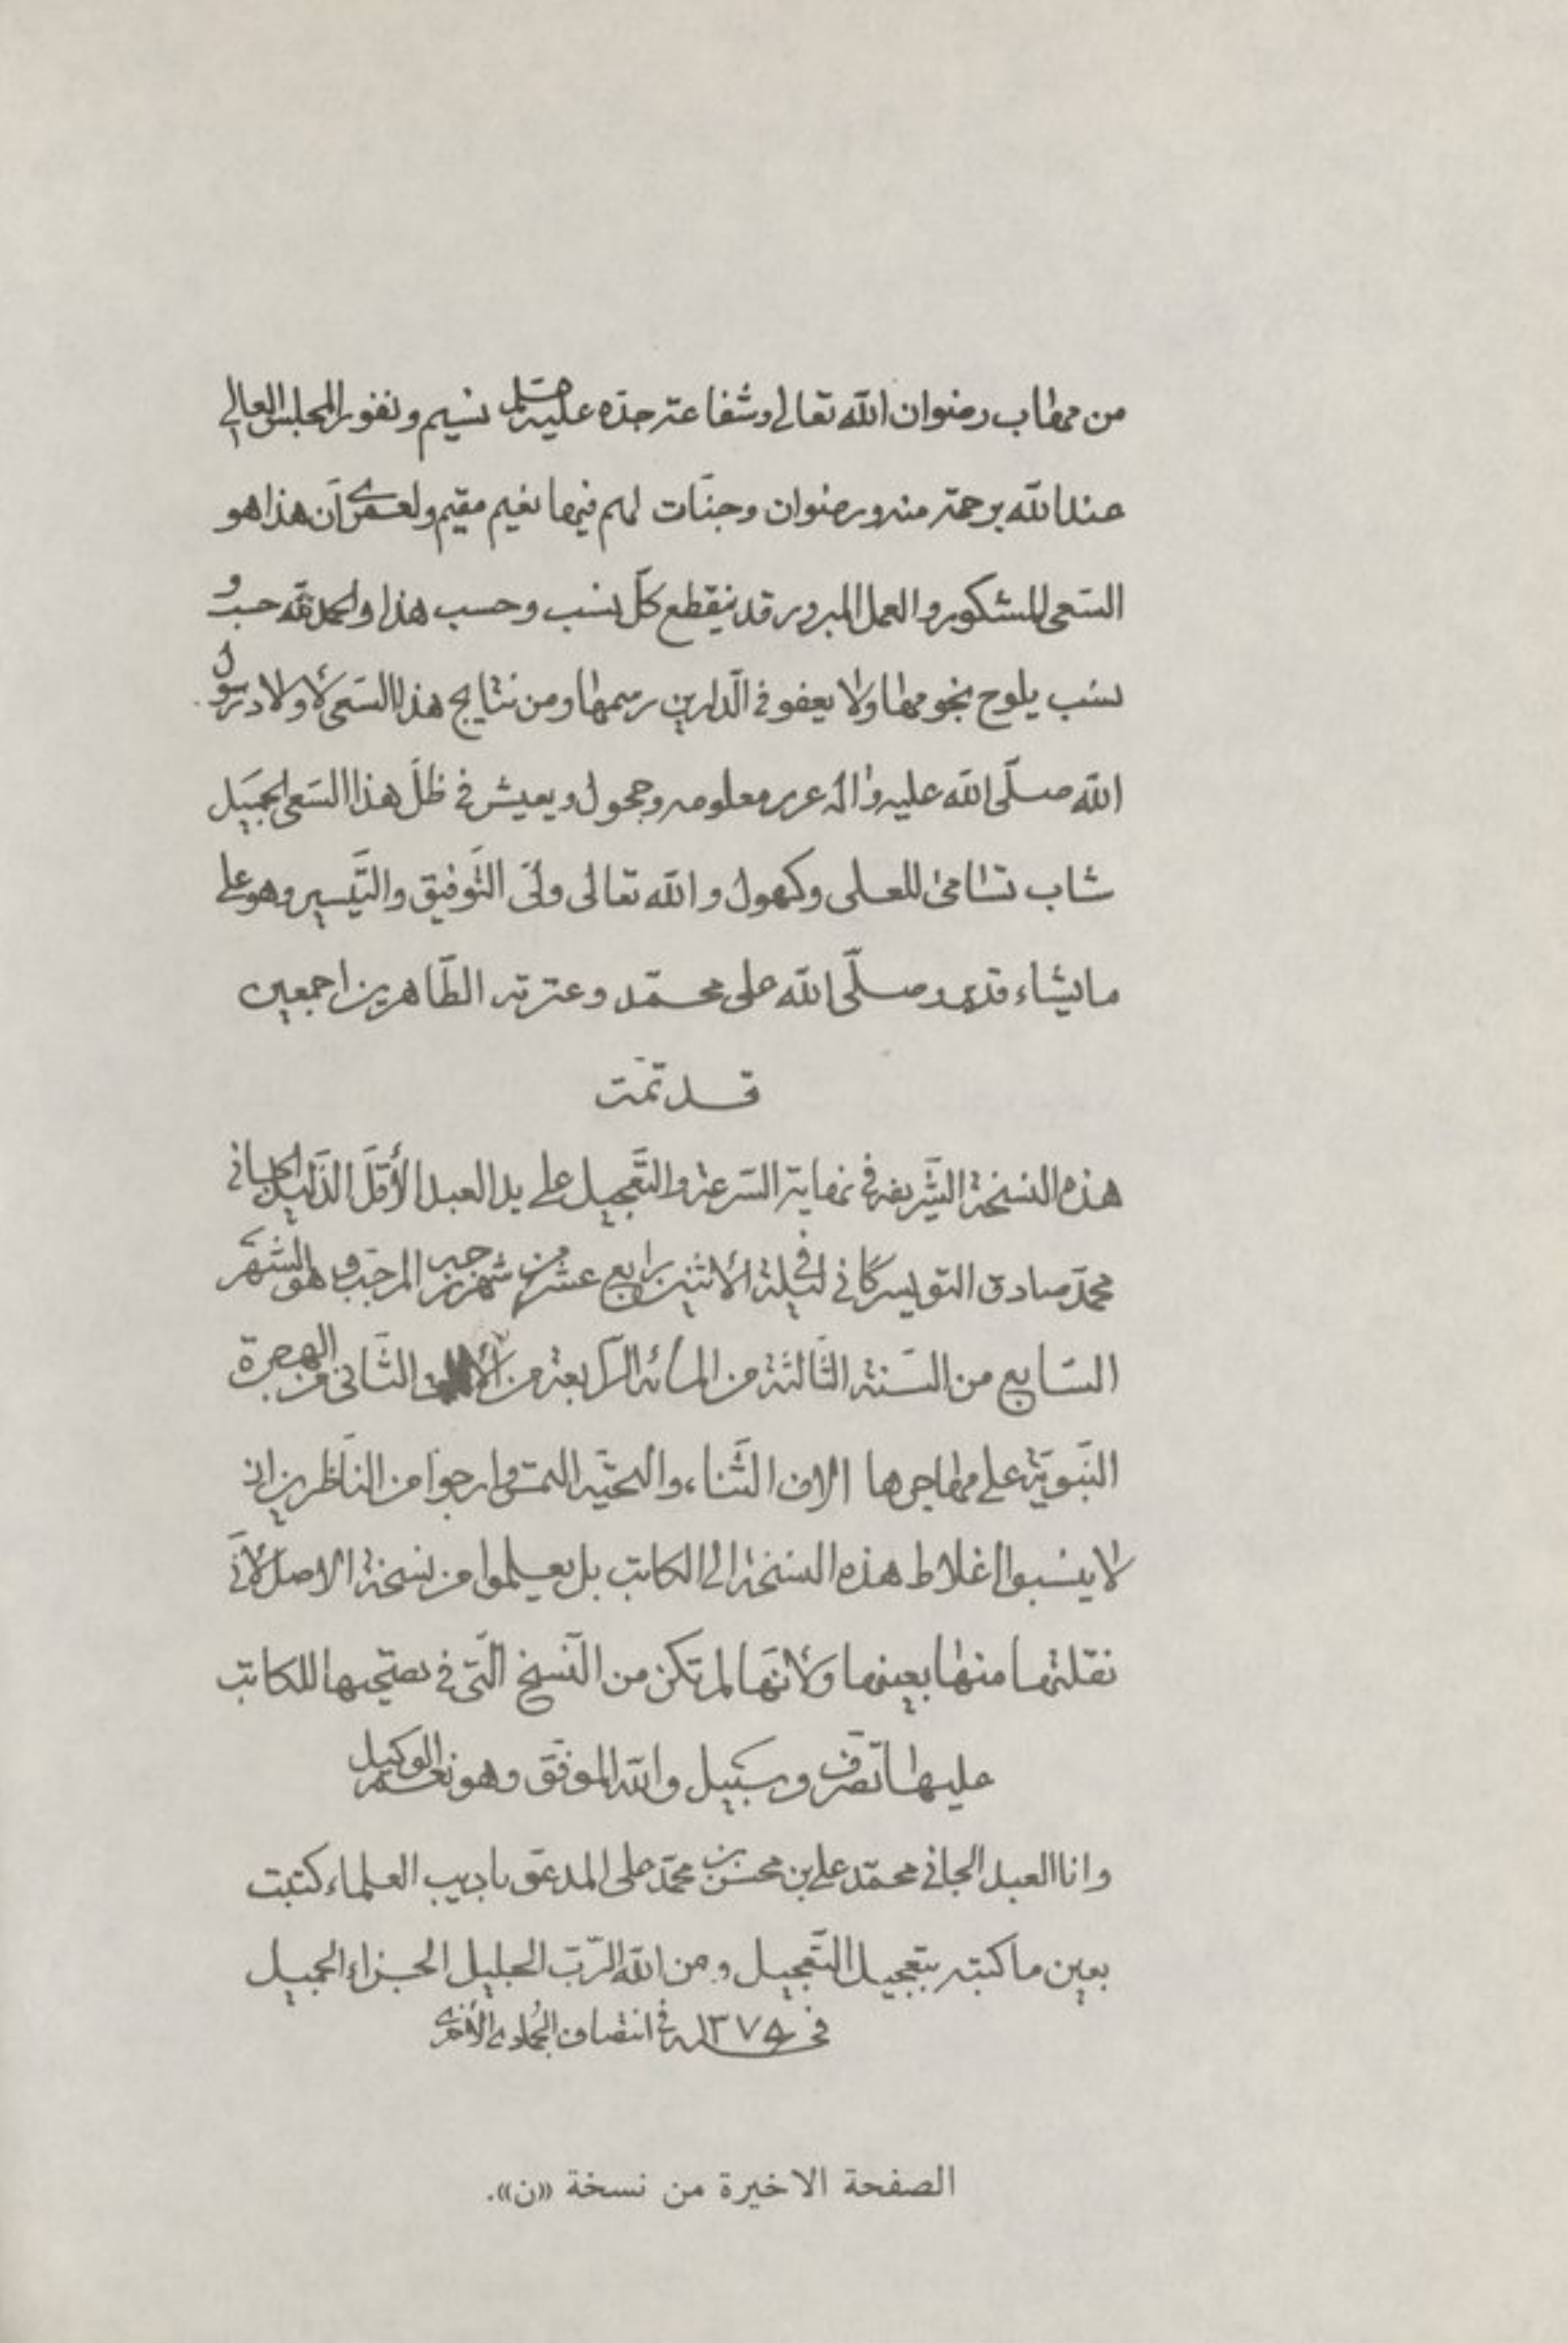 من مهاب رضوان الله تعالى وشفاعة جدّه عليه نسيم ونفور المجلس العالي
عند الله برحمة منه ورضوان وجنّات لهم فيها نعيم مقيم ولعمرى انّ هذا هو
السّعى المشكور والعمل المبرور قد ينقطع كلّ نسب وحسب هذا والحمد لله حسب و
نسب يلوح نجومها ولا يعفو فى الدّارين رسمها ومن نتايج هذا السّعى لأولاد رسول
الله صلّى الله عليه واله غرر معلومه وحجول ويعيش فى ظلّ هذا السّعى الجميل
شاب تسامى للعلى وكهول والله تعالى ولىّ التّوفيق والتّيسير وهو على
ما يشاء قدير وصلّى الله على محمّد وعترته الطّاهرين اجمعين
قد تمّت
هذه النسخة الشّريفه فى نهاية السّرعة والتّعجيل على يد العبد الأقلّ الذّليل الجانى
محمّد صادق التويسركانى فى ليلة الأثنين رابع عشر من شهر رجب المرجّب وهو الشّهر
السّابع من السّنة الثّالثة من المائه الرّابعة من الألف الثّانى من الهجرة
النّبويّة على مهاجرها الاف الثّناء والتحيّه التمس وارجوا من النّاظرين ان
لا ينسبوا اغلاط هذه النسخة الى الكاتب بل يعلموا من نسخة الاصل لأنّى
نقلتها منها بعينها ولأنّها لم تكن من النّسخ الّتى فى تصحيحها للكاتب
عليها تصرّف وسبيل والله الموفّق وهو نعم الوكيل
وانا العبد الجانى محمّد على بن محسن بن محمّد على المدعوّ باديب العلماء كتبت
بعين ما كتبه بتعجيل التّعجيل ومن الله الرّبّ الجليل الجزاء الجميل
فى سنة ١٣٧٥ فى انتصاف الجمادى الأخرى
الصفحة الاخيرة من نسخة «ن».